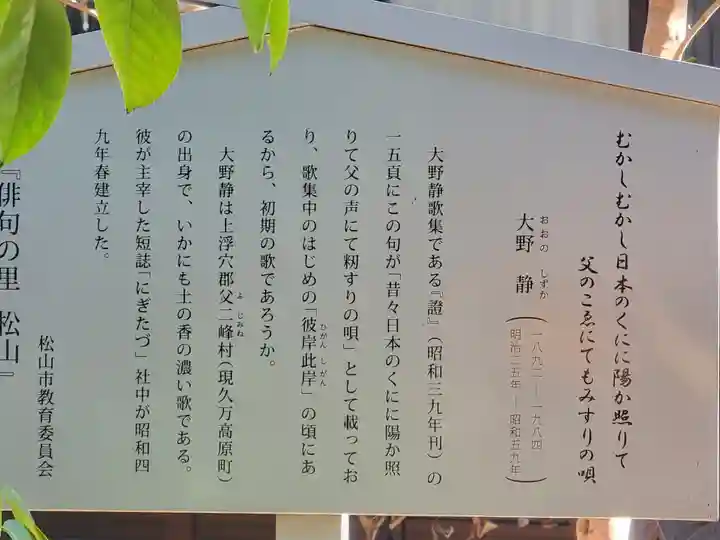 むかしむかし日本のくにに陽か照りて
父のこゑにてもみすりの唄
大野 静
おおの しずか
(一八九二―一九八四
明治二五年―昭和五九年)
大野静歌集である『證』(昭和三九年刊)の
一五頁にこの句が「昔々日本のくにに陽か照
りて父の声にて籾すりの唄」として載ってお
り、歌集中のはじめの「彼岸此岸」の頃にあ
ひがん しがん
るから、初期の歌であろうか。
大野静は上浮穴郡父二峰村(現久万高原町)
よ じみね
の出身で、いかにも土の香の濃い歌である。
彼が主宰した短誌「にぎたづ」社中が昭和四
九年春建立した。
松山市教育委員会
『俳句の里 松山』